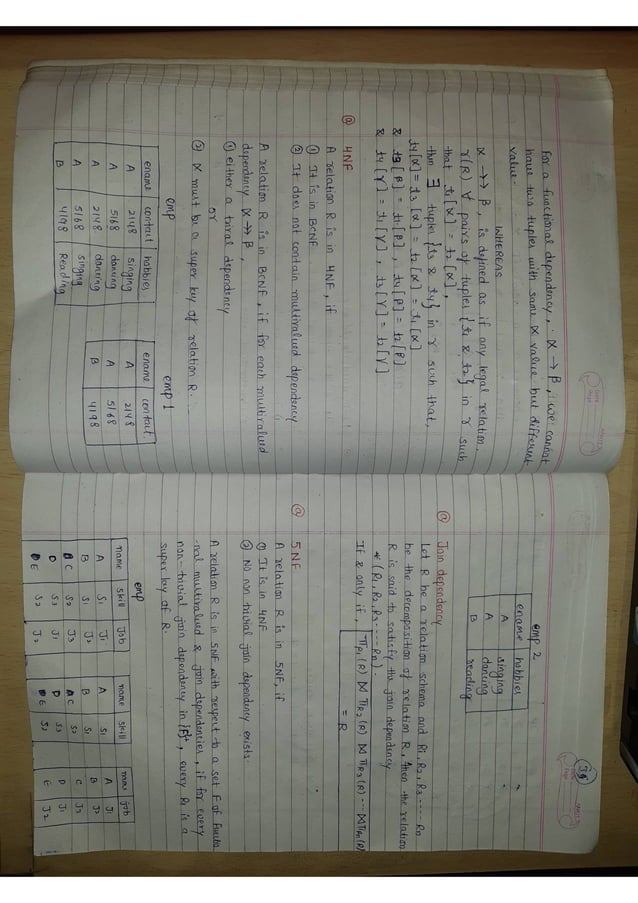 For a functional dependency, α → β, we cannot
have two tuples with same α value but different
value.
WHEREAS
α →→ β, is defined as if any legal relation
r(R) ∀ pairs of tuples {t1 & t2} in r such
that t1[α] = t2[α],
then ∃ tuples {t3 & t4} in r such that,
t4[α] = t3[α] = t2[α] = t1[α]
& t3[β] = t1[β], t4[β] = t2[β]
& t4[γ] = t1[γ], t3[γ] = t2[γ]
@ 4NF
A relation R is in 4NF, if
① It is in BCNF
② It does not contain multivalued dependency.
A relation R is in BCNF, if for each multivalued
dependency α →> β,
① either a trival dependency
or
② α must be a super key of relation R.
emp
ename contact hobbies
A 2148 singing
A 5168 dancing
A 2148 dancing
A 5168 singing
B 4198 Reading
emp 1
ename contact
A 2148
A 5168
B 4198
emp 2
ename hobbies
A singing
A dancing
B reading
@ Join dependency
Let R be a relation schema and R1, R2, R3 ---- Rn
be the decomposition of relation R, then the relation
R is said to satisfy the join dependency
*(R1, R2, R3 ---- Rn).
If & only if, πR1(R) ⋈ πR2(R) ⋈ πR3(R) --- ⋈ πRn(R)
= R
@ 5NF
A relation R is in 5NF, if
① It is in 4NF
② No non trivial join dependency exists.
A relation R is in 5NF with respect to a set F of functio
-nal multivalued & join dependencies, if for every
non-trivial join dependency in {F}+, every Ri is a
super key of R.
emp
name skill job
A S1 J1
B S1 J2
C S2 J3
D S3 J1
E S2 J2
name skill
A S1
B S1
C S2
D S3
E S2
name job
A J1
B J2
C J3
D J1
E J2